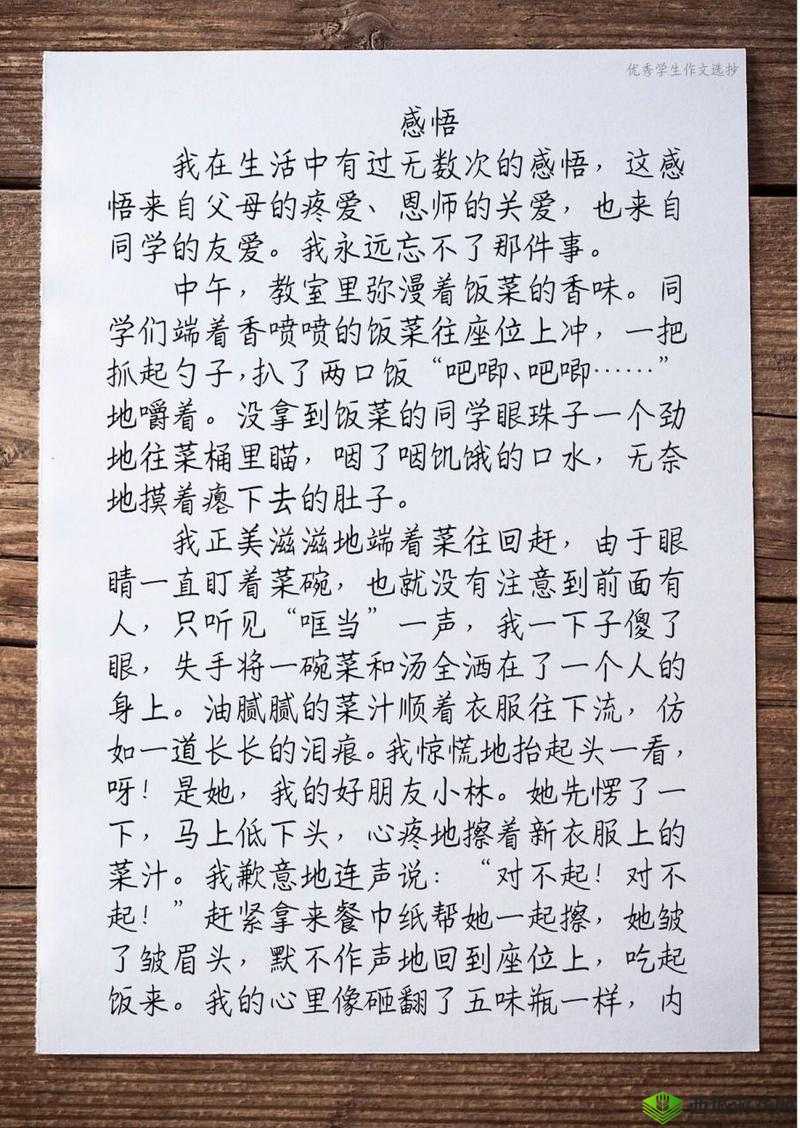 优秀学生作文选抄
感悟
我在生活中有过无数次的感悟，这感
悟来自父母的疼爱、恩师的关爱，也来自
同学的友爱。我永远忘不了那件事。
中午，教室里弥漫着饭菜的香味。同
学们端着香喷喷的饭菜往座位上冲，一把
抓起勺子，扒了两口饭“吧唧、吧唧……”
地嚼着。没拿到饭菜的同学眼珠子一个劲
地往菜桶里瞄，咽了咽饥饿的口水，无奈
地摸着瘪下去的肚子。
我正美滋滋地端着菜往回赶，由于眼
睛一直盯着菜碗，也就没有注意到前面有
人，只听见“哐当”一声，我一下子傻了
眼，失手将一碗菜和汤全洒在了一个人的
身上。油腻腻的菜汁顺着衣服往下流，仿
如一道长长的泪痕。我惊慌地抬起头一看，
呀！是她，我的好朋友小林。她先愣了一
下，马上低下头，心疼地擦着新衣服上的
菜汁。我歉意地连声说：“对不起！对不
起！”赶紧拿来餐巾纸帮她一起擦，她皱
了皱眉头，默不作声地回到座位上，吃起
饭来。我的心里像砸翻了五味瓶一样，内